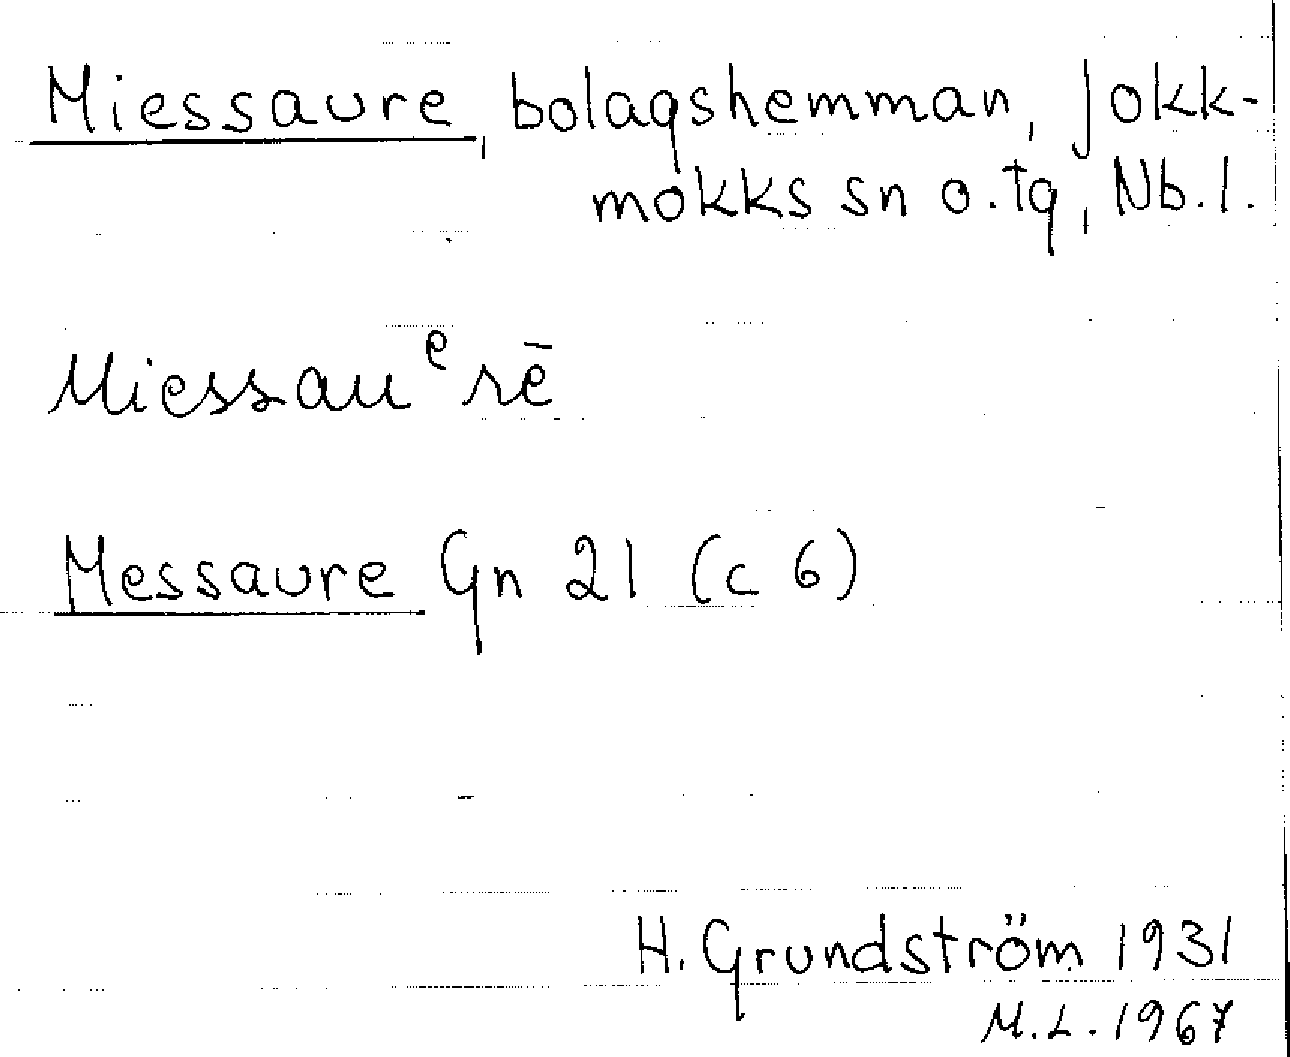 Miessaure, bolagshemman, Jokk-
mokks sn o. tg, Nb. l.
Miessauᵉrē
Messaure Gn 21 (c 6)
H. Grundström 1931
M.L. 1967